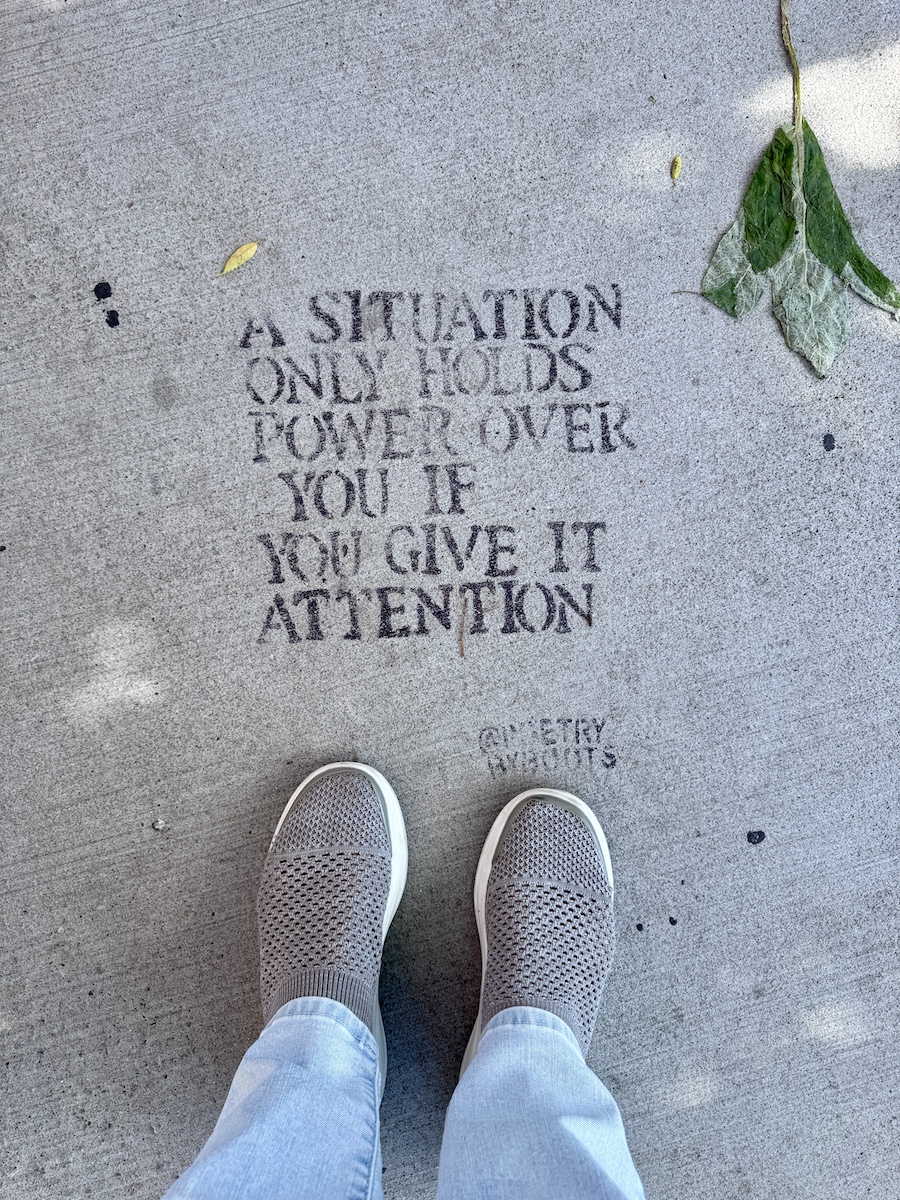 A SITUATION
ONLY HOLDS
POWER OVER
YOU IF
YOU GIVE IT
ATTENTION